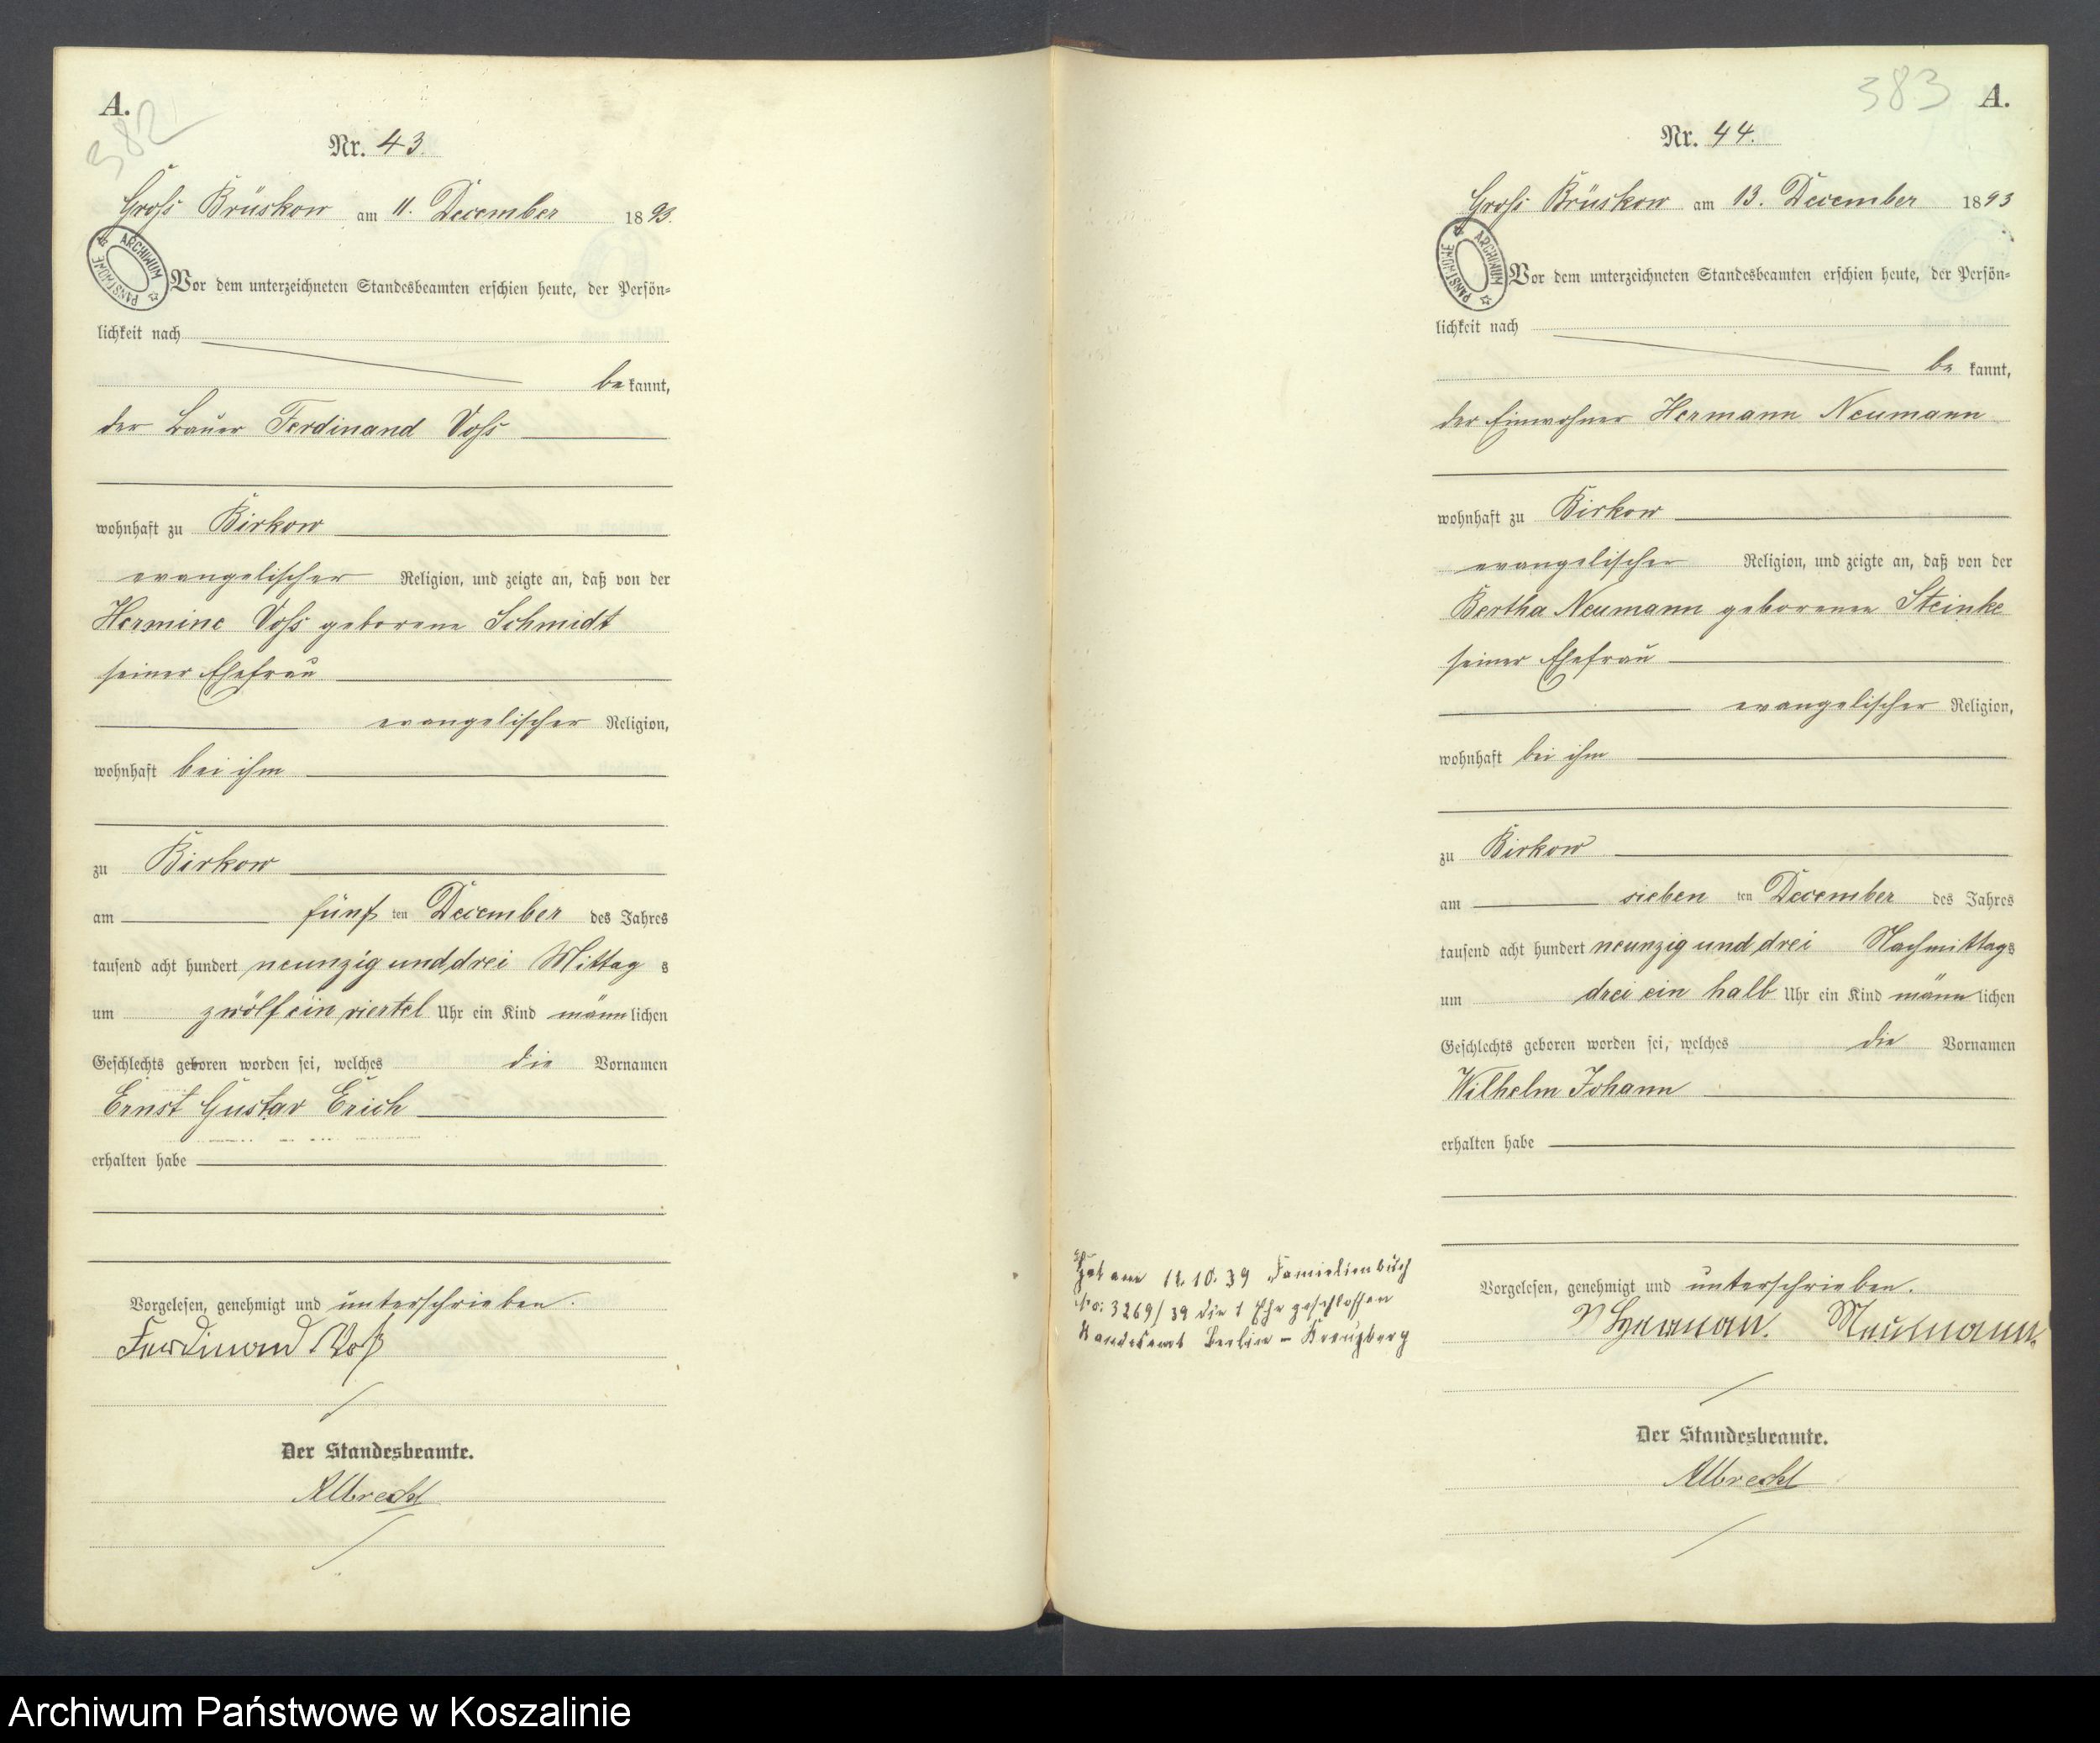 A.
382
Nr. 43.
Groß Brüskow am 11. December 1893.
ARCHIWUM PAŃSTWOWE
Vor dem unterzeichneten Standesbeamten erschien heute, der Persön=
lichkeit nach
bekannt,
der Bauer Ferdinand Voß
wohnhaft zu Birkow
evangelischer Religion, und zeigte an, daß von der
Hermine Voß geborene Schmidt
seiner Ehefrau
evangelischer Religion,
wohnhaft bei ihm
zu Birkow
am fünften December des Jahres
tausend acht hundert neunzig und drei Mittags
um zwölf ein viertel Uhr ein Kind männlichen
Geschlechts geboren worden sei, welches die Vornamen
Ernst Gustav Erich
erhalten habe
Vorgelesen, genehmigt und unterschrieben.
Ferdinand Voß
Der Standesbeamte.
Albrecht
383
A.
Nr. 44.
Groß Brüskow am 13. December 1893
ARCHIWUM PAŃSTWOWE
Vor dem unterzeichneten Standesbeamten erschien heute, der Persön=
lichkeit nach
bekannt,
der Einwohner Hermann Neumann
wohnhaft zu Birkow
evangelischer Religion, und zeigte an, daß von der
Bertha Neumann geborenen Steinke
seiner Ehefrau
evangelischer Religion,
wohnhaft bei ihm
zu Birkow
am siebenten December des Jahres
tausend acht hundert neunzig und drei Nachmittags
um drei ein halb Uhr ein Kind männlichen
Geschlechts geboren worden sei, welches die Vornamen
Wilhelm Johann
erhalten habe
Vorgelesen, genehmigt und unterschrieben.
Neumann
Der Standesbeamte.
Albrecht
Hat am 10.39 Familienbuch
No: 3269/39 die 1 Ehe geschlossen
Standesamt Berlin - Kreuzberg
Archiwum Państwowe w Koszalinie